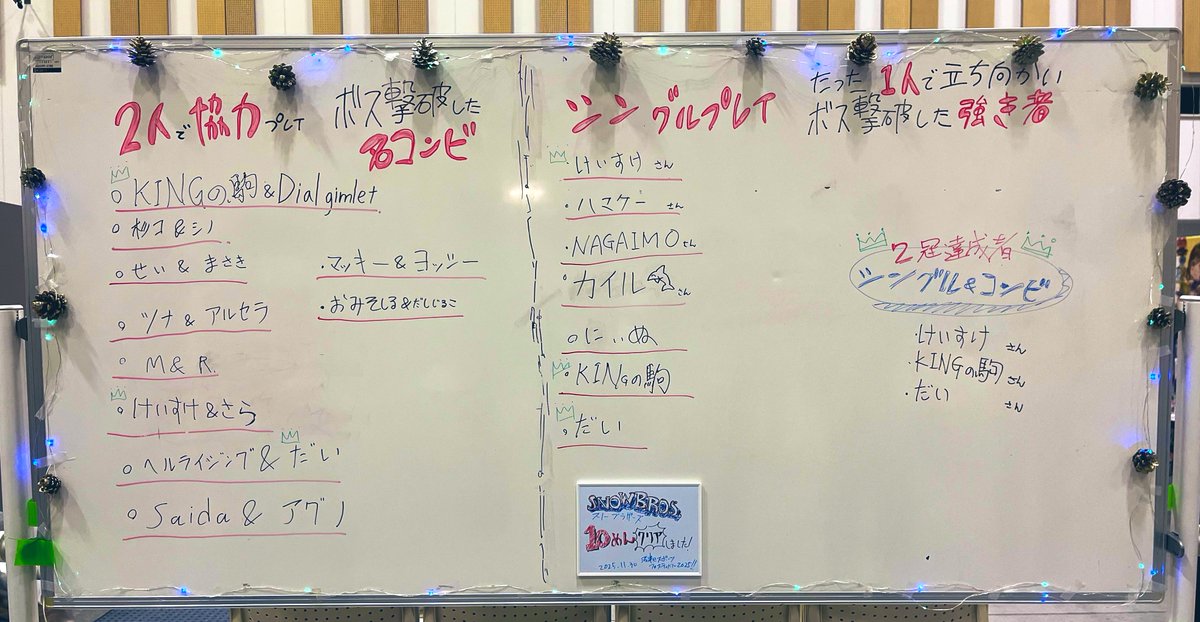 2人で協力プレイ
ボス撃破した
名コンビ
○KINGの駒&Dial gimlet
○杉コ&シノ
○せい&まさき
○ツナ&アルセラ
○M&R.
・けいすけ&さら
○ヘルライジング&だい
○Saida&アグノ
・マッキー&ヨッシー
・おみそしる&だしじるこ
シングルプレイ
たった1人で立ち向かい
ボス撃破した強き者
・けいすけさん
・ハマゲーさん
・NAGAIMOさん
・カイルさん
○にいぬ
・KINGの駒
・だい
2冠達成者
シングル&コンビ
・けいすけさん
・KINGの駒さん
・だいさん
SNOW BROS.
スノーブラザーズ
10めんクリアしました!
2025.11.30